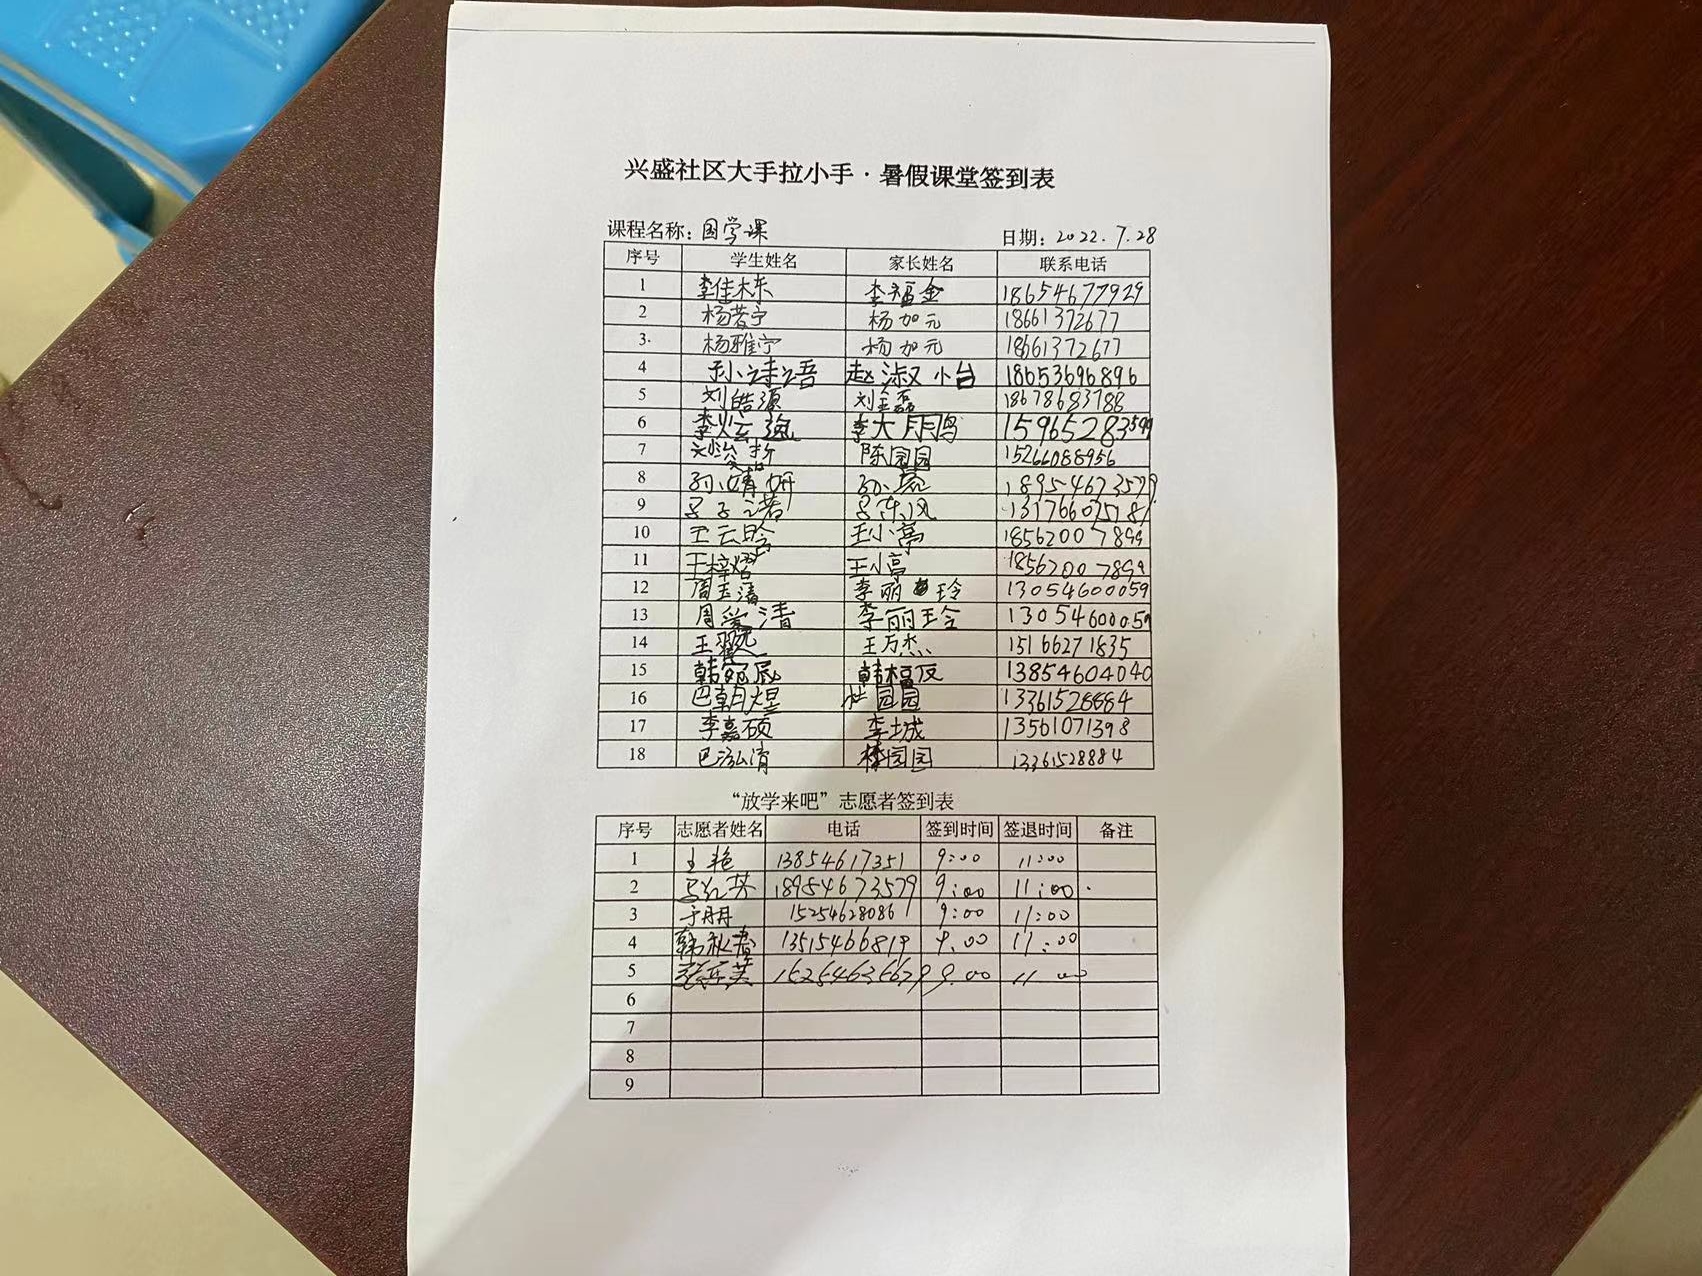 兴盛社区大手拉小手·暑假课堂签到表
课程名称：国学课 日期：2022.7.28
序号 学生姓名 家长姓名 联系电话
1 李佳栋 李福金 18654677929
2 杨若宁 杨加元 18661372677
3 杨雅宁 杨加元 18661372677
4 孙诗语 赵淑怡 18653696896
5 刘皓源 刘金磊 18678683788
6 李炫逸 李大鹏 15965283599
7 陈园园 15266088956
8 孙婧妍 18954673579
9 13176607518
10 王云晗 王小亭 18562007899
11 王梓熠 王小亭 18562007899
12 周玉清 李丽玲 13054600059
13 周 清 李丽玲 13054600059
14 王 王万杰 15166271835
15 韩宛辰 韩福 13854604040
16 巴朝煜 桂园园 13361528884
17 李嘉硕 李城 13561071398
18 巴泓清 园园 13361528884
“放学来吧”志愿者签到表
序号 志愿者姓名 电话 签到时间 签退时间 备注
1 王艳 13854617351 9:00 11:00
2 18954673579 9:00 11:00
3 于朋 15254628086 9:00 11:00
4 韩秋香 13515466819 9.00 11:00
5 9.00 11.00
6
7
8
9